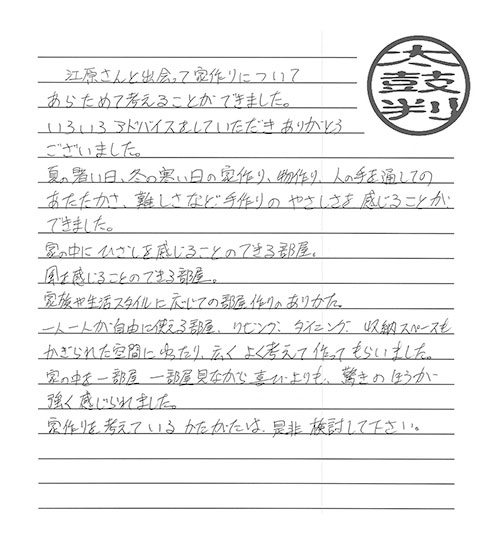 太鼓判
江原さんと出会って家作りについて
あらためて考えることができました。
いろいろアドバイスをしていただきありがとう
ございました。
夏の暑い日、冬の寒い日の家作り、物作り、人の手を通しての
あたたかさ、難しさなど手作りのやさしさを感じることが
できました。
家の中にひざしを感じることのできる部屋。
風を感じることのできる部屋。
家族や生活スタイルに応じての部屋作りのありかた。
一人一人が自由に使える部屋、リビング、ダイニング、収納スペースも
かぎられた空間にゆったり、広くよく考えて作ってもらいました。
家の中を一部屋一部屋見ながら喜びよりも、驚きのほうが
強く感じられました。
家作りを考えているかたがたは、是非検討して下さい。